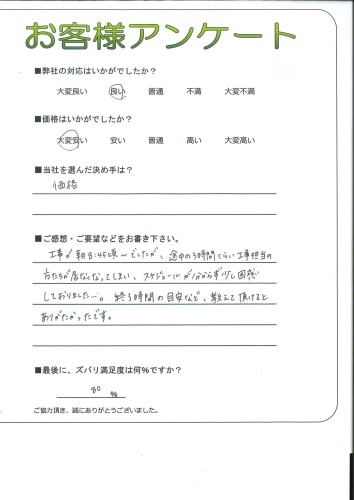 お客様アンケート
■弊社の対応はいかがでしたか？
大変良い 良い 普通 不満 大変不満
■価格はいかがでしたか？
大変安い 安い 普通 高い 大変高い
■当社を選んだ決め手は？
価格
■ご感想・ご要望などをお書き下さい。
工事が朝8:45頃～でしたが、途中の3時間くらい工事担当の
方たちが居なくなってしまい、スケジュールが分からず少し困惑
しておりました…。終了時間の目安など、教えて頂けると
ありがたかったです。
■最後に、ズバリ満足度は何%ですか？
80 %
ご協力頂き、誠にありがとうございました。